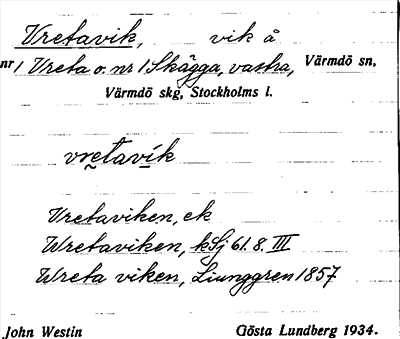 Vretavik, vik å
nr 1 Vreta o. nr 1 Skägga, västra, Värmdö sn,
Värmdö skg, Stockholms l.
vretavík
Vretaviken, ek
Wretaviken, kSj 61. 8. III
Wreta viken, Ljunggren 1857
John Westin Gösta Lundberg 1934.